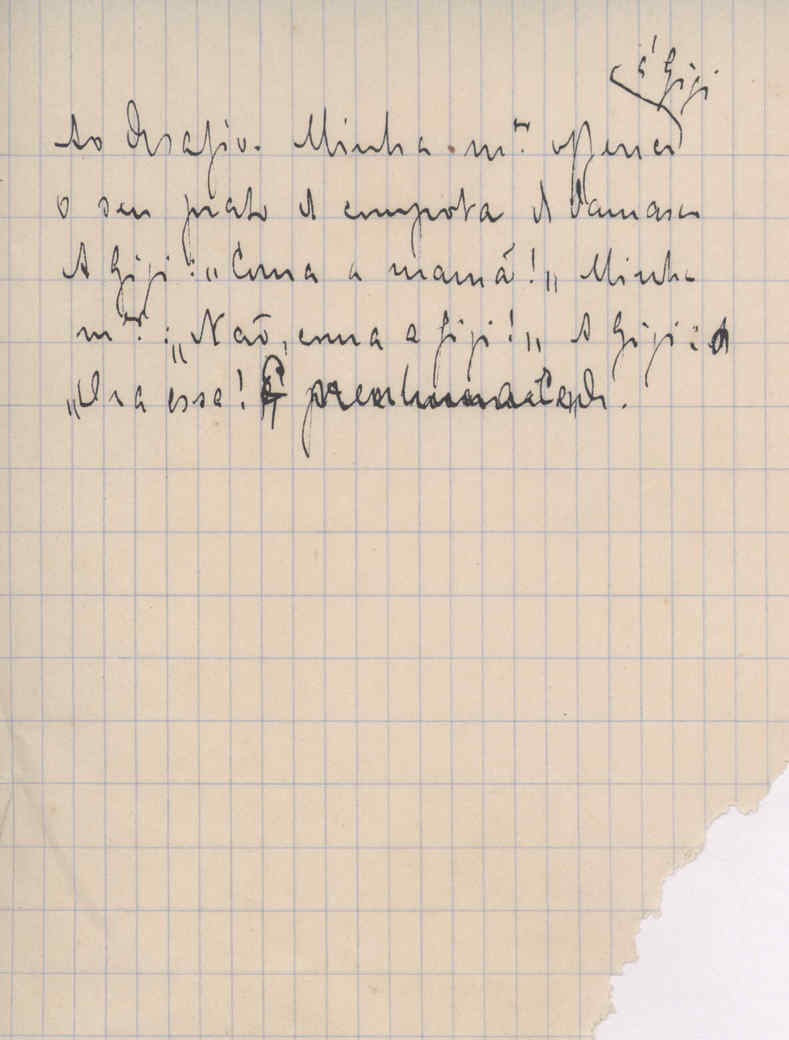 á Gigi
Ao Desafio. Minha m.er offerece
o seu prato de compota de Damasco
A Gigi: „Coma a mamã!„ Minha
m.er: „Não, coma a Gigi!„ A Gigi:
„Ora essa!